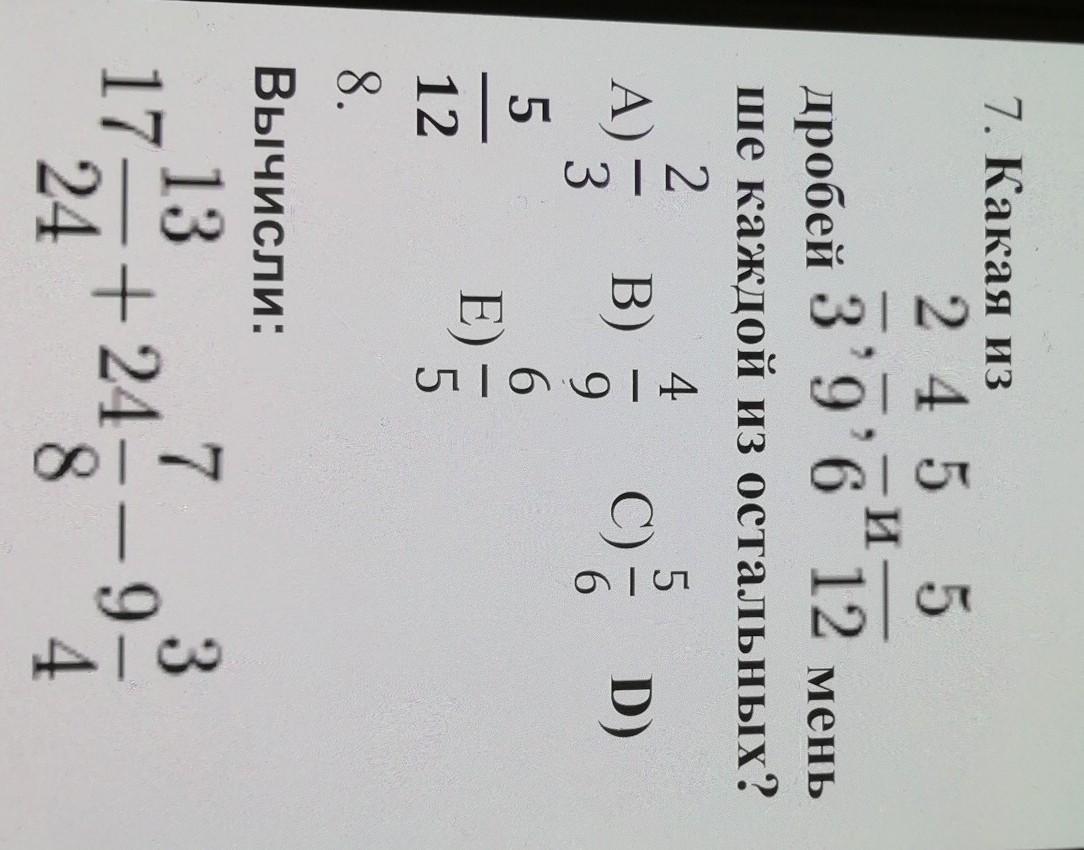 7. Какая из
дробей 2/3, 4/9, 5/6 и 5/12 мень
ше каждой из остальных?
A) 2/3 B) 4/9 C) 5/6 D)
5/12 E) 6/5
8.
Вычисли:
17 13/24 + 24 7/8 − 9 3/4